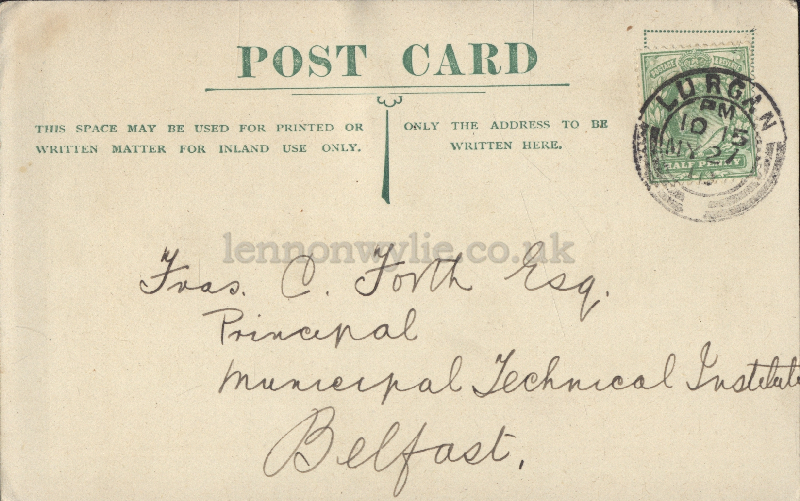 POST CARD
THIS SPACE MAY BE USED FOR PRINTED OR
WRITTEN MATTER FOR INLAND USE ONLY.
ONLY THE ADDRESS TO BE
WRITTEN HERE.
LURGAN
PM
10 15
MY 27
HALF PENNY
lennonwylie.co.uk
Fras. C. Forth Esq.
Principal
Municipal Technical Institute
Belfast.